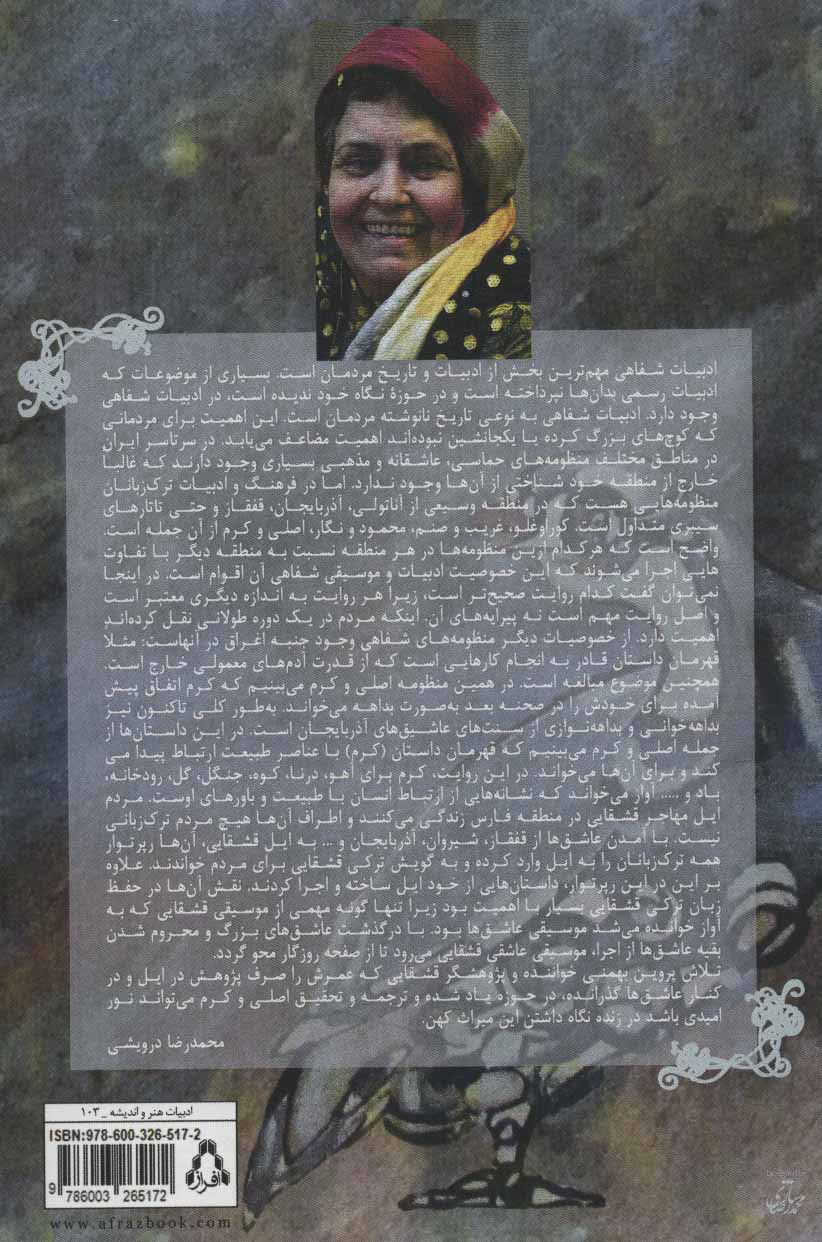 ادبیات شفاهی مهم‌ترین بخش از ادبیات و تاریخ مردمان است. بسیاری از موضوعات که
ادبیات رسمی بدان‌ها نپرداخته است و در حوزهٔ نگاه خود ندیده است، در ادبیات شفاهی
وجود دارد. ادبیات شفاهی به نوعی تاریخ نانوشته مردمان است. این اهمیت برای مردمانی
که کوچ‌های بزرگ کرده یا یکجانشین نبوده‌اند اهمیت مضاعف می‌یابد. در سرتاسر ایران
در مناطق مختلف منظومه‌های حماسی، عاشقانه و مذهبی بسیاری وجود دارند که غالباً
خارج از منطقه خود شناختی از آن‌ها وجود ندارد. اما در فرهنگ و ادبیات ترک‌زبانان
منظومه‌هایی هست که در منطقه وسیعی از آناتولی، آذربایجان، قفقاز و حتی تاتارهای
سیبری متداول است. کوراوغلو، غریب و صنم، محمود و نگار، اصلی و کرم از آن جمله است.
واضح است که هرکدام ازین منظومه‌ها در هر منطقه نسبت به منطقه دیگر با تفاوت
هایی اجرا می‌شوند که این خصوصیت ادبیات و موسیقی شفاهی آن اقوام است. در اینجا
نمی‌توان گفت کدام روایت صحیح‌تر است، زیرا هر روایت به اندازه دیگری معتبر است
و اصل روایت مهم است نه پیرایه‌های آن. اینکه مردم در یک دوره طولانی نقل کرده‌اند
اهمیت دارد. از خصوصیات دیگر منظومه‌های شفاهی وجود جنبه اغراق در آنهاست: مثلا
قهرمان داستان قادر به انجام کارهایی است که از قدرت آدم‌های معمولی خارج است.
همچنین موضوع مبالغه است. در همین منظومه اصلی و کرم می‌بینیم که کرم اتفاق پیش
آمده برای خودش را در صحنه بعد به‌صورت بداهه می‌خواند. به‌طور کلی تاکنون نیز
بداهه‌خوانی و بداهه‌نوازی از سنت‌های عاشیق‌های آذربایجان است. در این داستان‌ها از
جمله اصلی و کرم می‌بینیم که قهرمان داستان (کرم) با عناصر طبیعت ارتباط پیدا می
کند و برای آن‌ها می‌خواند. در این روایت، کرم برای آهو، درنا، کوه، جنگل، گل، رودخانه،
باد و ..... آواز می‌خواند که نشانه‌هایی از ارتباط انسان با طبیعت و باورهای اوست. مردم
ایل مهاجر قشقایی در منطقه فارس زندگی می‌کنند و اطراف آن‌ها هیچ مردم ترک‌زبانی
نیست. با آمدن عاشق‌ها از قفقاز، شیروان، آذربایجان و ... به ایل قشقایی، آن‌ها رپرتوار
همه ترک‌زبانان را به ایل وارد کرده و به گویش ترکی قشقایی برای مردم خواندند. علاوه
بر این در این رپرتوار، داستان‌هایی از خود ایل ساخته و اجرا کردند. نقش آن‌ها در حفظ
زبان ترکی قشقایی بسیار با اهمیت بود زیرا تنها گونه مهمی از موسیقی قشقایی که به
آواز خوانده می‌شد موسیقی عاشق‌ها بود. با درگذشت عاشق‌های بزرگ و محروم شدن
بقیه عاشق‌ها از اجرا، موسیقی عاشقی قشقایی می‌رود تا از صفحه روزگار محو گردد.
تلاش پروین بهمنی خواننده و پژوهشگر قشقایی که عمرش را صرف پژوهش در ایل و در
کنار عاشق‌ها گذرانده، در حوزه یاد شده و ترجمه و تحقیق اصلی و کرم می‌تواند نور
امیدی باشد در زنده نگاه داشتن این میراث کهن.
محمدرضا درویشی
ادبیات هنر و اندیشه _ ۱۰۳
ISBN:978-600-326-517-2
9 786003 265172
افراز
www.afrazbook.com